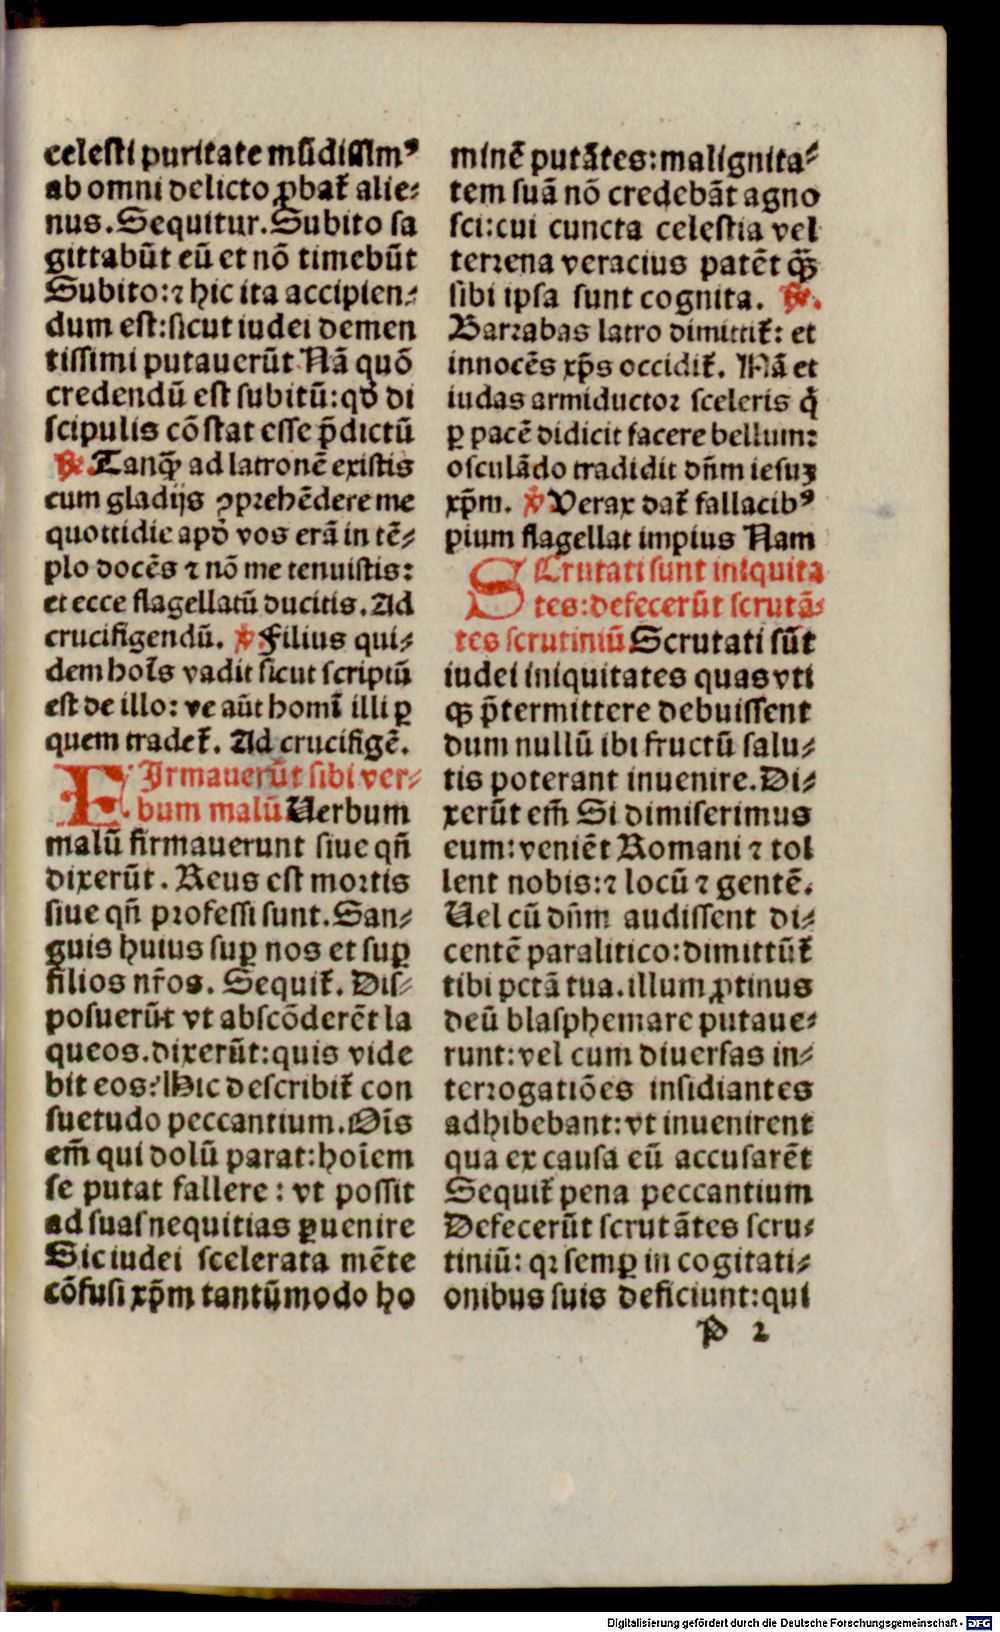 celesti puritate mūdissimꝰ
ab omni delicto ꝓbat᷑ alie⸗
nus. Sequitur. Subito sa
gittabūt eū et nō timebūt
Subito: ⁊ hic ita accipien⸗
dum est: sicut iudei demen
tissimi putauerūt Nā quō
credendū est subitū: qd̓ di
scipulis cōstat esse p̄dictū
℟. Tanqȝ̄ ad latronē existis
cum gladijs ꝯprehēdere me
quottidie apd̓ vos erā in tē⸗
plo docēs ⁊ nō me tenuistis:
et ecce flagellatū ducitis. Ad
crucifigendū. ℣ Filius qui⸗
dem hoīs vadit sicut scriptū
est de illo: ve aūt homī illi ꝑ
quem tradet᷑. Ad crucifigē.
FIrmauerūt sibi ver⸗
bum malū Uerbum
malū firmauerunt siue qn̄
dixerūt. Reus est mortis
siue qn̄ professi sunt. San⸗
guis huius suꝑ nos et suꝑ
filios nr̄os. Sequit᷑. Dis⸗
posuerūt vt abscōderēt la
queos. dixerūt: quis vide
bit eos? Hic describit᷑ con
suetudo peccantium. Oīs
em̄ qui dolū parat: hoīem
se putat fallere: vt possit
ad suas nequitias ꝑuenire
Sic iudei scelerata mēte
cōfusi xp̄m tantūmodo ho
minē putātes: malignita⸗
tem suā nō credebāt agno
sci: cui cuncta celestia vel
terrena veracius patēt qȝ̄
sibi ipsa sunt cognita. ℟.
Barrabas latro dimittit᷑: et
innocēs xp̄s occidit᷑. Nā et
iudas armiductor sceleris q̇
ꝑ pacē didicit facere bellum:
osculādo tradidit dn̄m iesuȝ
xp̄m. ℣ Verax dat᷑ fallacibꝰ
pium flagellat impius Nam
SCrutati sunt iniquita
tes: defecerūt scrutā⸗
tes scrutiniū Scrutati sūt
iudei iniquitates quas vti
qȝ p̄termittere debuissent
dum nullū ibi fructū salu⸗
tis poterant inuenire. Di⸗
xerūt em̄ Si dimiserimus
eum: veniēt Romani ⁊ tol
lent nobis: ⁊ locū ⁊ gentē.
Uel cū dn̄m audissent di⸗
centē paralitico: dimittūt᷑
tibi pctā tua. illum ꝓtinus
deū blasphemare putaue⸗
runt: vel cum diuersas in⸗
terrogatiōes insidiantes
adhibebant: vt inuenirent
qua ex causa eū accusarēt
Sequit᷑ pena peccantium
Defecerūt scrutātes scru⸗
tiniū: qꝛ semꝑ in cogitati⸗
onibus suis deficiunt: qui
P 2
Digitalisierung gefördert durch die Deutsche Forschungsgemeinschaft - DFG